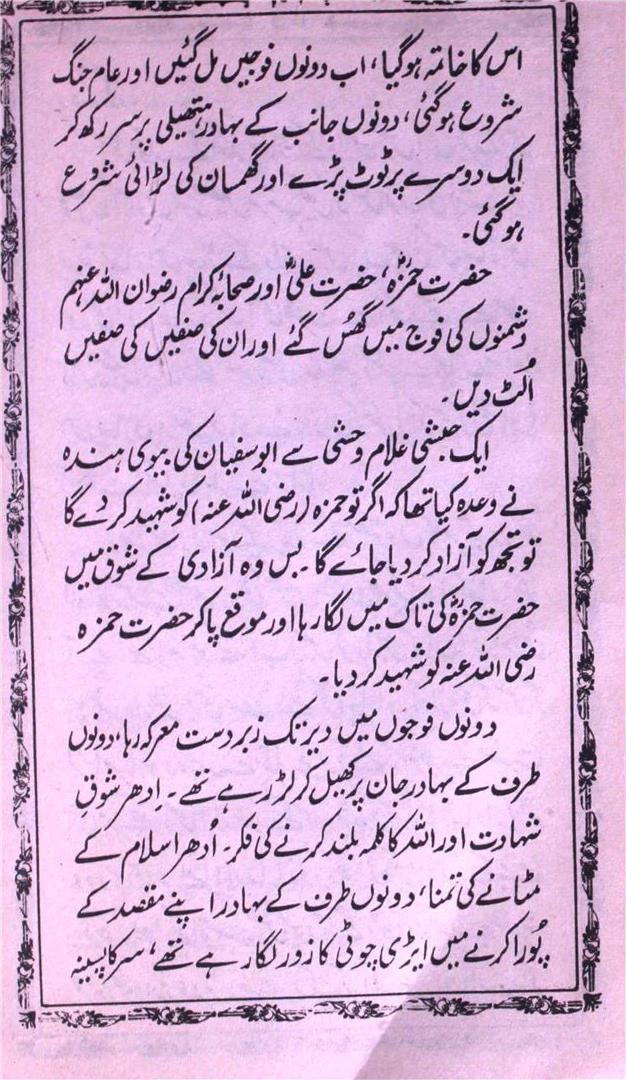 اس کا خاتمہ ہوگیا، اب دونوں فوجیں مل گئیں اور عام جنگ
شروع ہوگئی، دونوں جانب کے بہادر ہتھیلی پر سر رکھ کر
ایک دوسرے پر ٹوٹ پڑے اور گھمسان کی لڑائی شروع
ہوگئی۔
حضرت حمزہؓ، حضرت علیؓ اور صحابۂ کرام رضوان اللہ عنہم
دشمنوں کی فوج میں گھُس گئے اور ان کی صفیں کی صفیں
اُلٹ دیں۔
ایک حبشی غلام وحشی سے ابوسفیان کی بیوی ہندہ
نے وعدہ کیا تھا کہ اگر تو حمزہ (رضی اللہ عنہ) کو شہید کر دے گا
تو تجھ کو آزاد کر دیا جائے گا۔ بس وہ آزادی کے شوق میں
حضرت حمزہؓ کی تاک میں لگا رہا اور موقع پا کر حضرت حمزہ
رضی اللہ عنہ کو شہید کر دیا۔
دونوں فوجوں میں دیر تک زبردست معرکہ رہا، دونوں
طرف کے بہادر جان پر کھیل کر لڑ رہے تھے۔ اِدھر شوقِ
شہادت اور اللہ کا کلمہ بلند کرنے کی فکر۔ اُدھر اسلام کے
مٹانے کی تمنا، دونوں طرف کے بہادر اپنے مقصد کے
پُورا کرنے میں ایڑی چوٹی کا زور لگا رہے تھے، سر کا پسینہ